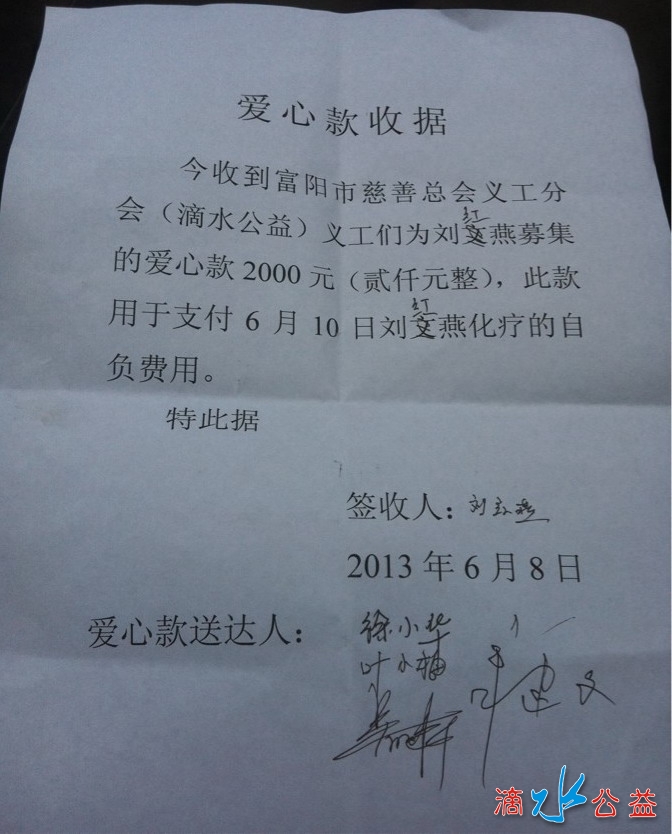 爱心款收据
今收到富阳市慈善总会义工分
会（滴水公益）义工们为刘红燕募集
的爱心款2000元（贰仟元整），此款
用于支付6月10日刘红燕化疗的自
负费用。
特此据
签收人：刘红燕
2013年6月8日
爱心款送达人：徐小华
叶小梅
滴水公益